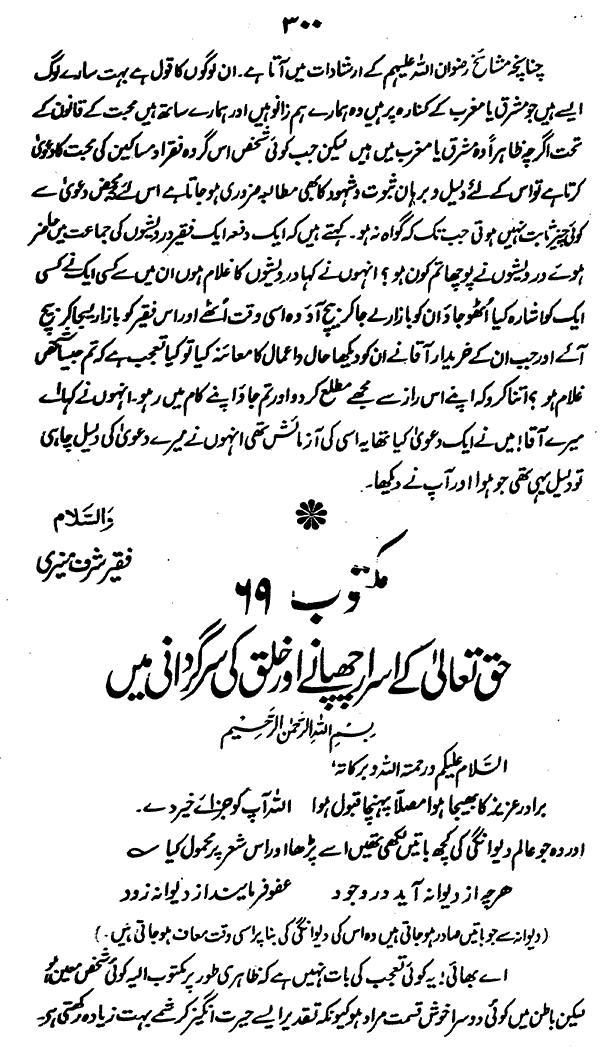 ۳۰۰
چنانچہ مشائخ رضوان اللہ علیہم کے ارشادات میں آتا ہے۔ ان لوگوں کا قول ہے بہت سارے لوگ
ایسے ہیں جو مشرق یا مغرب کے کنارہ پر ہیں وہ ہمارے ہم زانو ہیں اور ہمارے ساتھ ہیں محبت کے قانون کے
تحت اگرچہ ظاہراً وہ مشرق یا مغرب میں ہیں لیکن جب کوئی شخص اس گروہ فقراء و مساکین کی محبت کا دعویٰ
کرتا ہے تو اس کے لئے دلیل و برہان ثبوت و شہود کا بھی مطالبہ ضروری ہو جاتا ہے اس لئے کہ محض دعویٰ سے
کوئی چیز ثابت نہیں ہوتی جب تک کہ گواہ نہ ہو۔ کہتے ہیں کہ ایک دفعہ ایک فقیر درویشوں کی جماعت میں حاضر
ہوئے درویشوں نے پوچھا تم کون ہو؟ انہوں نے کہا درویشوں کا غلام ہوں ان میں سے کسی ایک نے کسی
ایک کو اشارہ کیا اُٹھو جاؤ ان کو بازار لے جا کر بیچ آؤ وہ اسی وقت اُٹھے اور اس فقیر کو بازار لیجا کر بیچ
آئے اور جب ان کے خریدار آقا نے ان کو دیکھا حال و اعمال کا معائنہ کیا تو کہا تعجب ہے کہ تم جیسا شخص
غلام ہو؟ اتنا کرو کہ اپنے اس راز سے مجھے مطلع کر دو اور تم جاؤ اپنے کام میں رہو۔ انہوں نے کہا اے
میرے آقا! میں نے ایک دعویٰ کیا تھا یہ اسی کی آزمائش تھی انہوں نے میرے دعویٰ کی دلیل چاہی
تو دلیل یہی تھی جو ہوا اور آپ نے دیکھا۔
والسّلام
فقیر شرف منیری
مکتوب ۶۹
حق تعالیٰ کے اسرار چھپانے اور خلق کی سرگردانی میں
بِسْمِ اللہِ الرَّحْمٰنِ الرَّحِیْمِ
السّلام علیکم ورحمتہ اللہ و برکاتہٗ
برادر عزیز کا بھیجا ہوا مصلّا پہنچا قبول ہوا اللہ آپ کو جزائے خیر دے۔
اور وہ جو عالم دیوانگی کی کچھ باتیں لکھی تھیں اسے پڑھا اور اس شعر پر محمول کیا ؎
ہرچہ از دیوانہ آید در وجود عفو فرمایند از دیوانہ زود
(دیوانہ سے جو باتیں صادر ہو جاتی ہیں وہ اس کی دیوانگی کی بنا پر اسی وقت معاف ہو جاتی ہیں۔)
اے بھائی! یہ کوئی تعجب کی بات نہیں ہے کہ ظاہری طور پر مکتوب الیہ کوئی شخص معین ہو
لیکن باطن میں کوئی دوسرا خوش قسمت مراد ہو کیونکہ تقدیر ایسے حیرت انگیز کرشمے بہت زیادہ رکھتی ہے۔